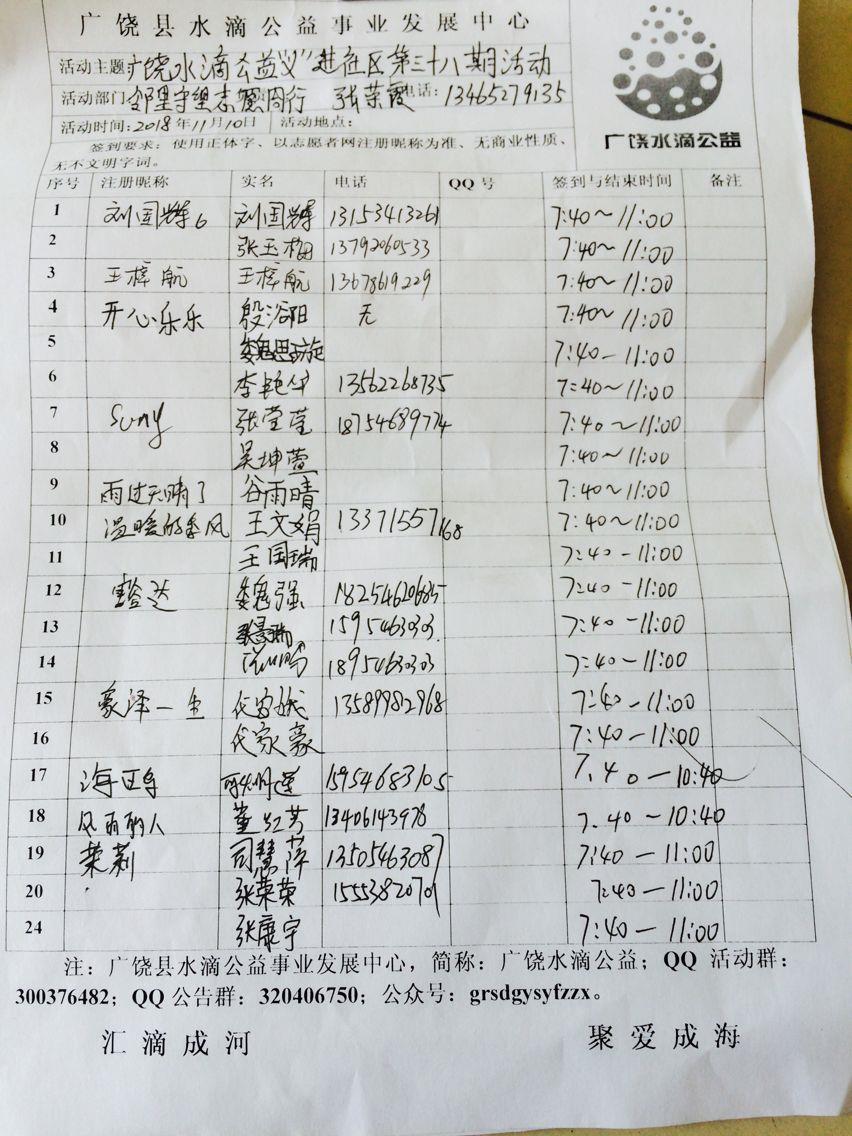 广饶县水滴公益事业发展中心
活动主题 广饶水滴公益义"进社区第三十八期活动
活动部门 邻里守望志愿同行 张荣霞 电话: 13465279135
活动时间:2018年11月10日 活动地点:
签到要求:使用正体字、以志愿者网注册昵称为准、无商业性质、
无不文明字词。
广饶水滴公益
序号 注册昵称 实名 电话 QQ号 签到与结束时间 备注
1 刘国辉6 刘国辉 13153413261 7:40~11:00
2 张玉梅 13792060533 7:40~11:00
3 王梓航 王梓航 13678619229 7:40~11:00
4 开心乐乐 殷浴阳 无 7:40~11:00
5 7:40-11:00
6 李艳华 13562268735 7:40~11:00
7 Suny 张莹莹 18754689774 7:40~11:00
8 吴坤萱 7:40~11:00
9 雨过天晴了 谷雨晴 7:40~11:00
10 温暖的季风 王文娟 13371557168 7:40~11:00
11 王国瑞 7:40-11:00
12 魏强 18254620685 7:40-11:00
13 1595463033 7:40-11:00
14 1895463303 7:40-11:00
15 豪泽一生 13589982968 7:40-11:00
16 代家豪 7:40-11:00
17 15954683105 7.40-10:40
18 风雨的人 董红芳 13406143978 7.40-10:40
19 茉莉 司慧萍 13505463087 7:40-11:00
20 张荣荣 15553820701 7:40-11:00
24 张康宇 7:40-11:00
注:广饶县水滴公益事业发展中心,简称:广饶水滴公益;QQ 活动群:
300376482;QQ公告群:320406750;公众号:grsdgysyfzzx。
汇滴成河 聚爱成海